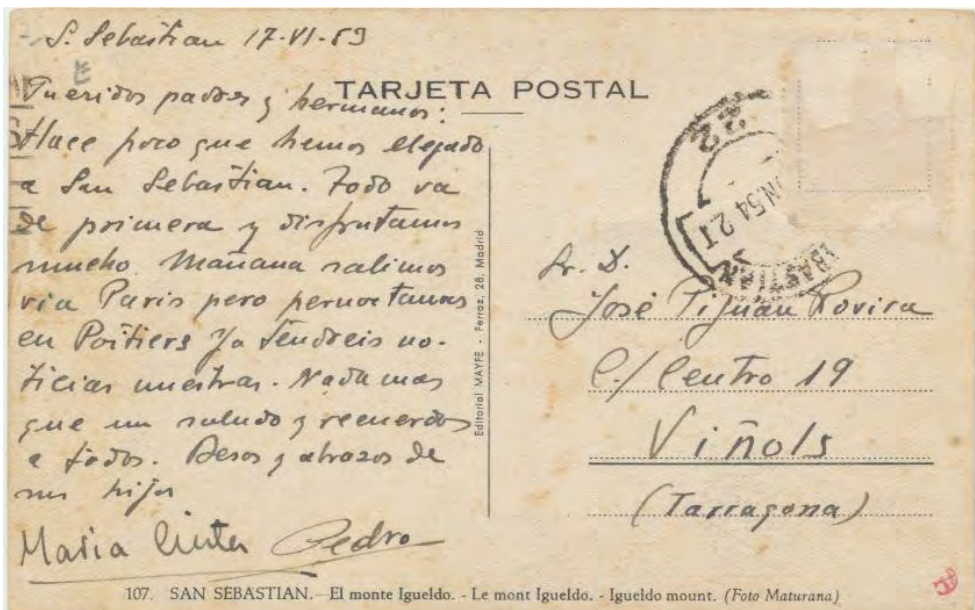 S. Sebastian 17-VI-53
TARJETA POSTAL
Queridos padres y hermanos:
Hace poco que hemos llegado
a San Sebastian. Todo va
de primera y disfrutamos
mucho. Mañana salimos
via Paris pero pernoctamos
en Poitiers Ya tendreis no-
ticias nuestras. Nada mas
que un saludo y recuerdos
a todos. Besos y abrazos de
sus hijos
Maria Cinta Pedro
Editorial MAYFE - Ferraz, 28. Madrid
22
N 54 2T
BASTIAN
Sr. D.
José Pijuán Rovira
C/ Centro 19
Viñols
(Tarragona)
107. SAN SEBASTIAN.- El monte Igueldo. - Le mont Igueldo. - Igueldo mount. (Foto Maturana)